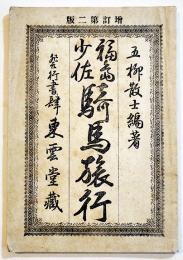 版二第訂增
五柳散士編著
福島
少佐
騎馬旅行
發行書肆 東雲堂藏